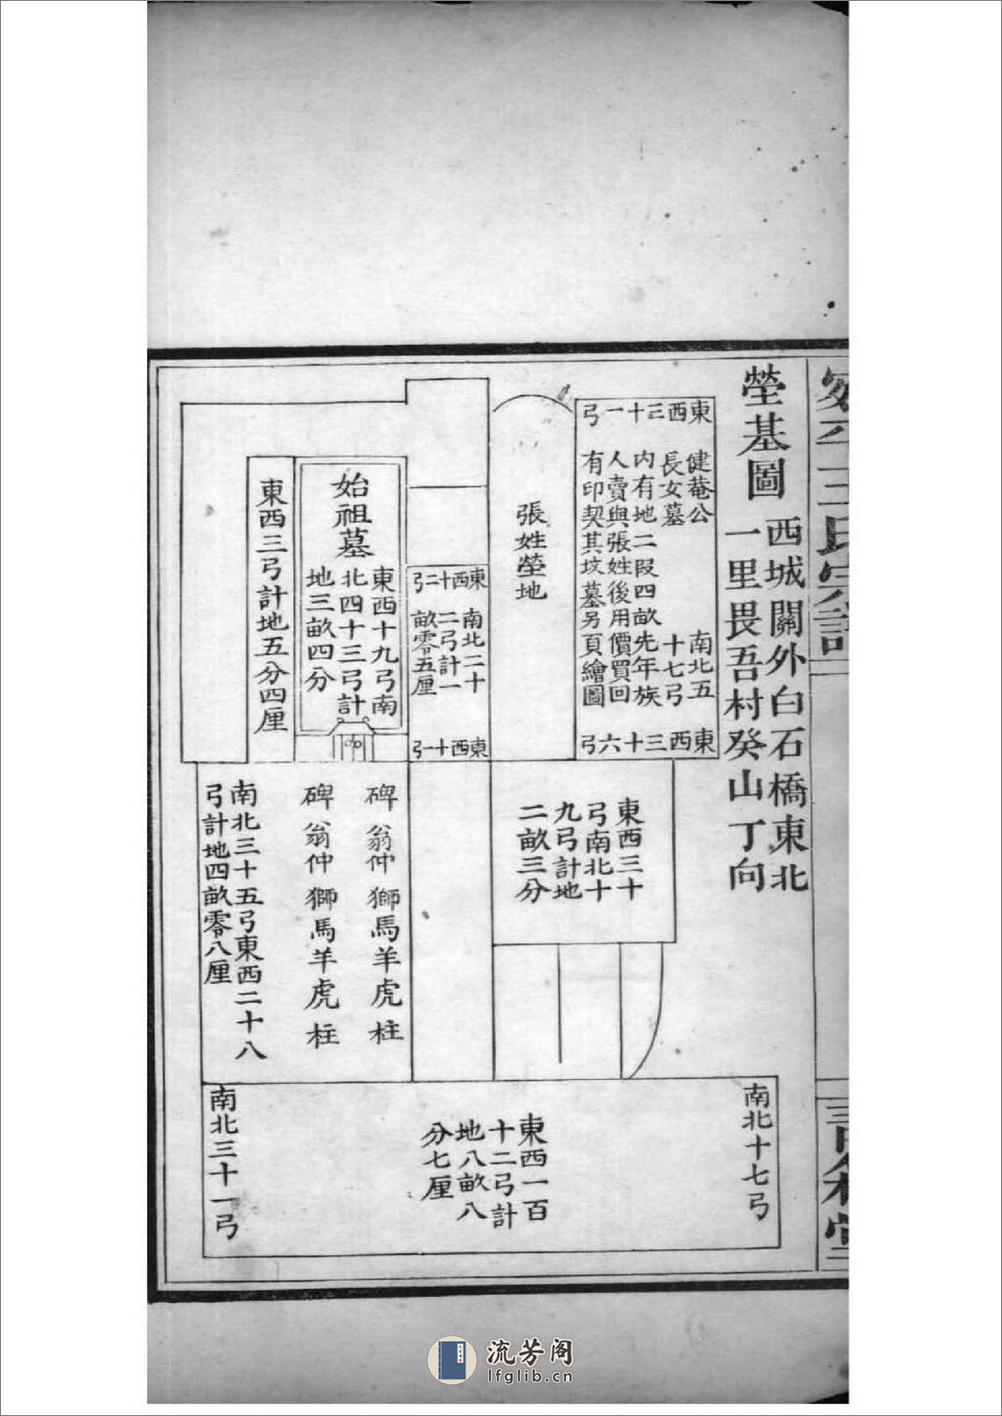 塋基圖
西城關外白石橋東北
一里畏吾村癸山丁向
東西三十一弓
健菴公
長女墓
南北五
十七弓
內有地二段四畝先年族
人賣與張姓後用價買回
有印契其坟墓另頁繪圖
東西三十六弓
張姓塋地
東西十二弓
南北二十
二弓計一
畝零五厘
東西十一弓
始祖墓
東西十九弓南
北四十三弓計
地三畝四分
東西三弓計地五分四厘
東西三十
弓南北十
九弓計地
二畝三分
碑 翁仲 獅馬羊虎柱
碑 翁仲 獅馬羊虎柱
南北三十五弓東西二十八
弓計地四畝零八厘
南北十七弓
東西一百
十二弓計
地八畝八
分七厘
南北三十一弓
流芳阁
lfglib.cn